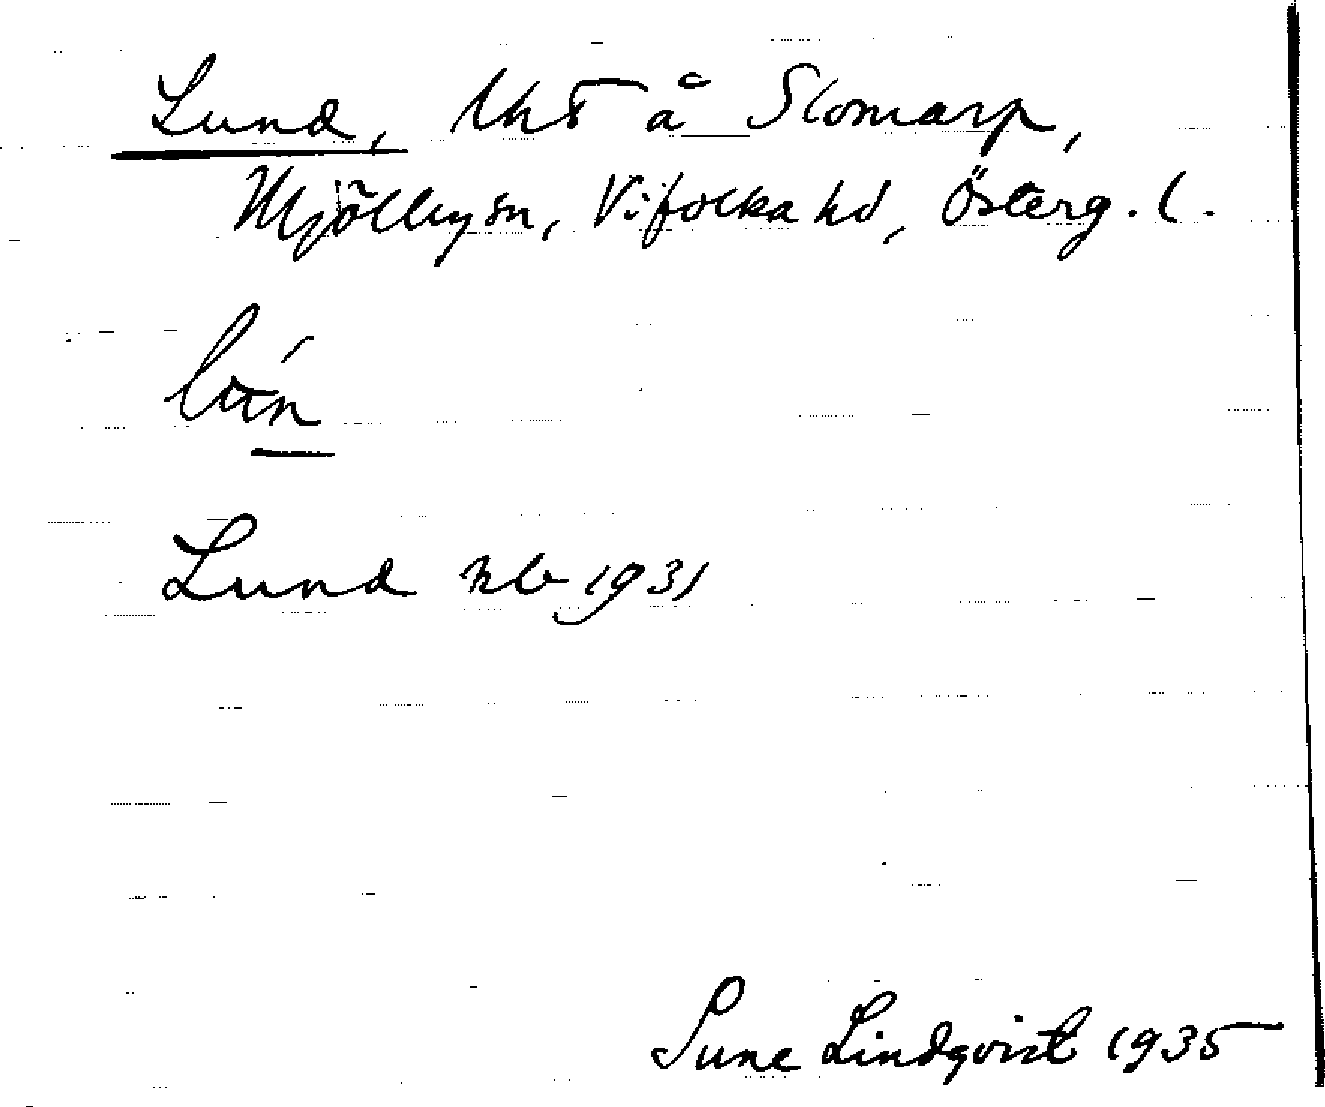 Lund, lht å Slomarp,
Mjölby sn, Vifolka hd, Österg. l.
Lund hb 1931
Sune Lindqvist 1935